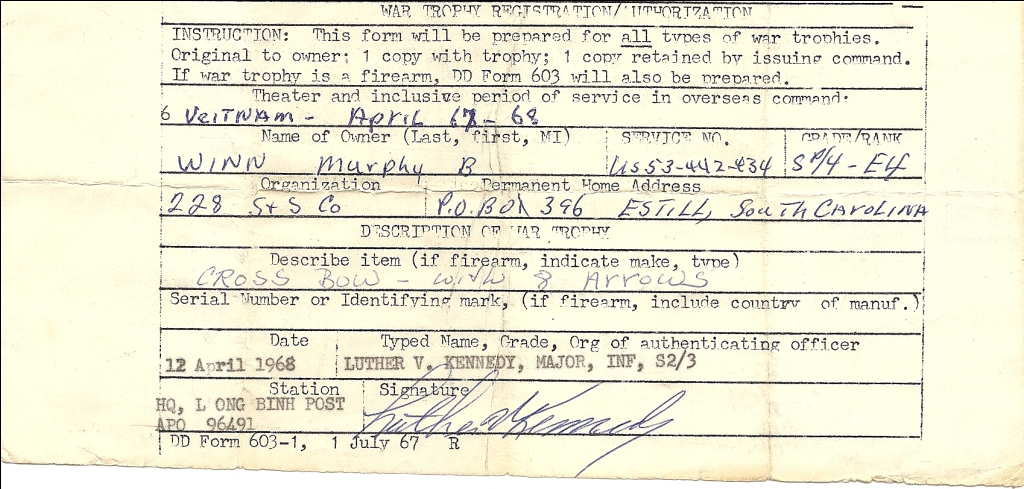 WAR TROPHY REGISTRATION/AUTHORIZATION
INSTRUCTION: This form will be prepared for all types of war trophies.
Original to owner; 1 copy with trophy; 1 copy retained by issuing command.
If war trophy is a firearm, DD Form 603 will also be prepared.
Theater and inclusive period of service in overseas command:
6 VeiTNAM - April 67 - 68
Name of Owner (Last, first, MI) SERVICE NO. GRADE/RANK
WINN Murphy B US53-442-434 SP/4 - E4
Organization Permanent Home Address
228 S+S Co P.O. BOX 396 ESTILL, South CAROLINA
DESCRIPTION OF WAR TROPHY
Describe item (if firearm, indicate make, type)
CROSS BOW - with 8 Arrows
Serial Number or Identifying mark, (if firearm, include country of manuf.)
Date Typed Name, Grade, Org of authenticating officer
12 April 1968 LUTHER V. KENNEDY, MAJOR, INF, S2/3
Station Signature
HQ, L ONG BINH POST
APO 96491 Luther V Kennedy
DD Form 603-1, 1 July 67 R